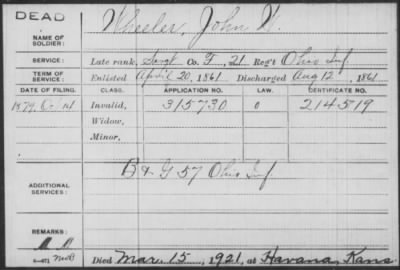 DEAD
Wheeler, John W.
NAME OF SOLDIER:
SERVICE: Late rank, Sergt Co. F, 21 Reg't Ohio Inf
TERM OF SERVICE: Enlisted April 20, 1861 Discharged Aug 12, 1861
DATE OF FILING. CLASS. APPLICATION NO. LAW. CERTIFICATE NO.
1879, Oct 14 Invalid, 315730 0 214519
Widow,
Minor,
B & G 57 Ohio Inf
ADDITIONAL SERVICES:
REMARKS:
Died Mar. 15, 1921, at Havana, Kans